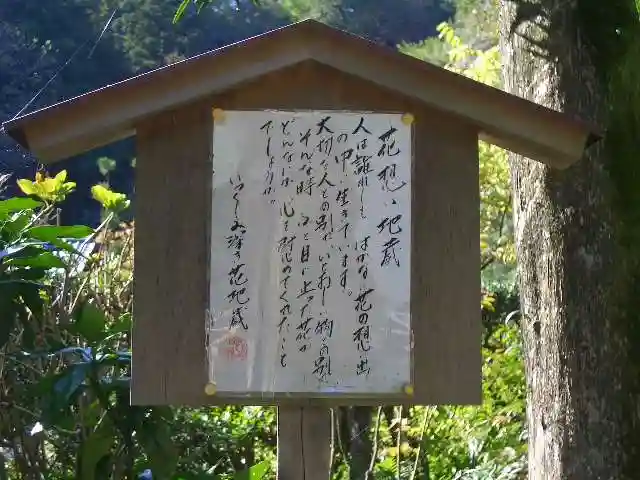 花想い地蔵
人は誰れしも はかない花の想い出
の中 生きています。
大切な人との別れ いとおしい物との別れ
そんな時 ふと目に止った花が
どんなに 心を慰めてくれたことも
でしょうか。
いつくしみ深き花地蔵